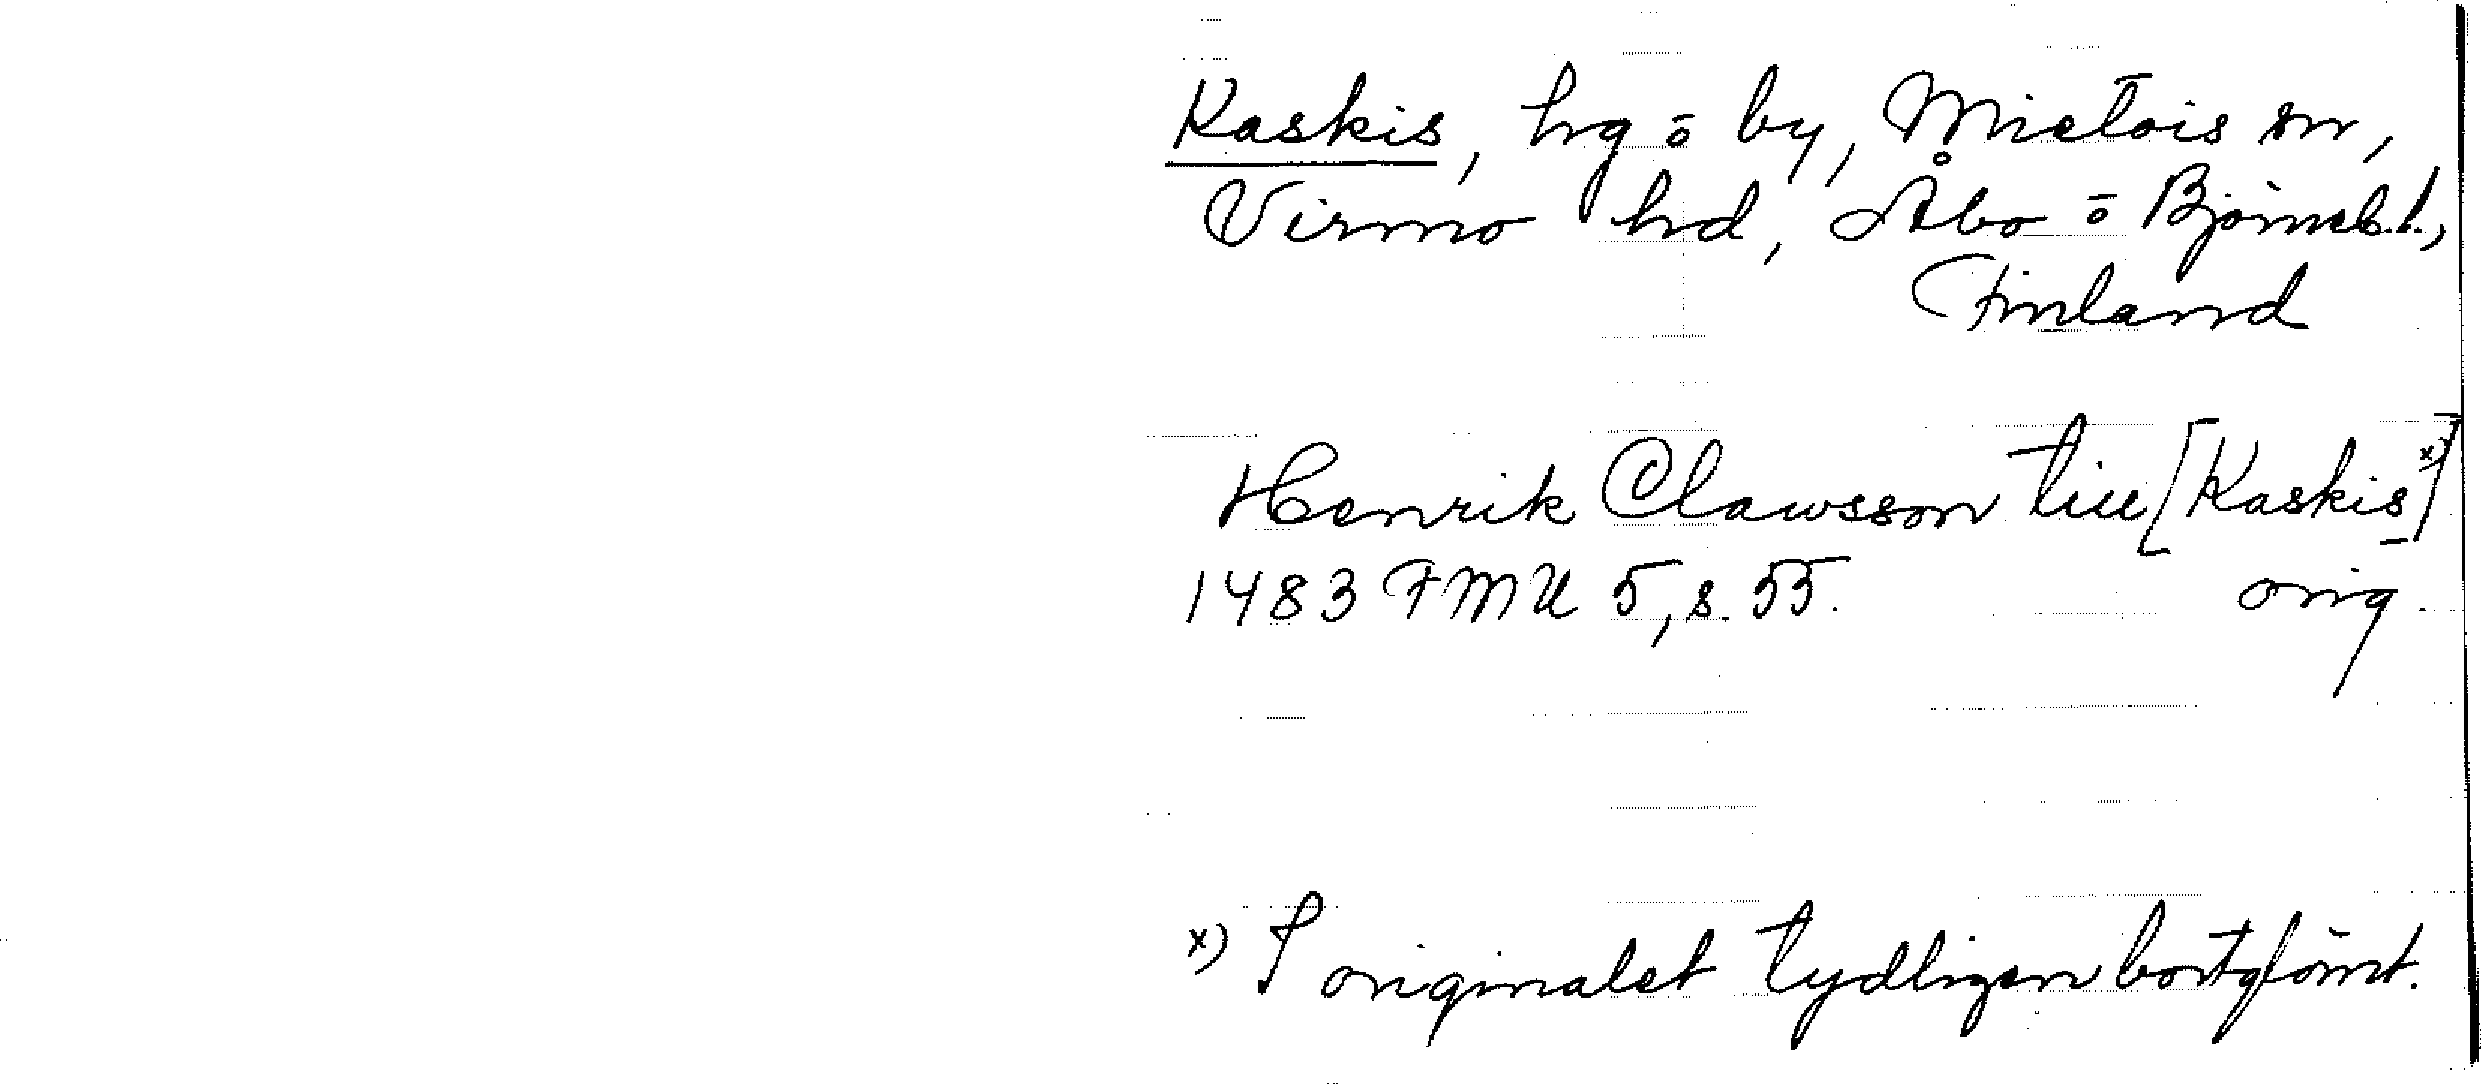 Kaskis, hg o by, Mietois sn,
Virmo hd, Åbo o Björneb.l.,
Finland
Henrik Clawsson till [Kaskis x)]
1483 FMU 5, s. 55. orig.
x) I originalet tydligen bortglömt.